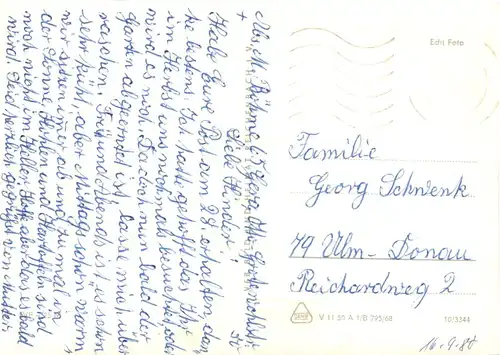 Abs. M. Böhme 65 Gera Otto
Liebe Kinder!
Habe Eure Post am 28. erhalten, danke
bestens. Ich hatte gehofft das Ihr
im Herbst uns nochmals besucht oder
wird es nix. Da crop nun bald der
Garten abgeerntet ist, lasse mich über
raschen. Früh und Abends ist's schon
sehr kühl, aber Mittag schön warm
wir sitzen immer ab und zu mal in
der Sonne. Rüben und Kartoffeln sind
noch nicht im Keller, aber das es bald
wird. Seid herzlich gegrüßt von Mutter.
Echt Foto
Familie
Georg Schwenk
79 Ulm-Donau
Reichardweg 2
V 11 50 A 1/B 795/68
10/3344
16.9.80